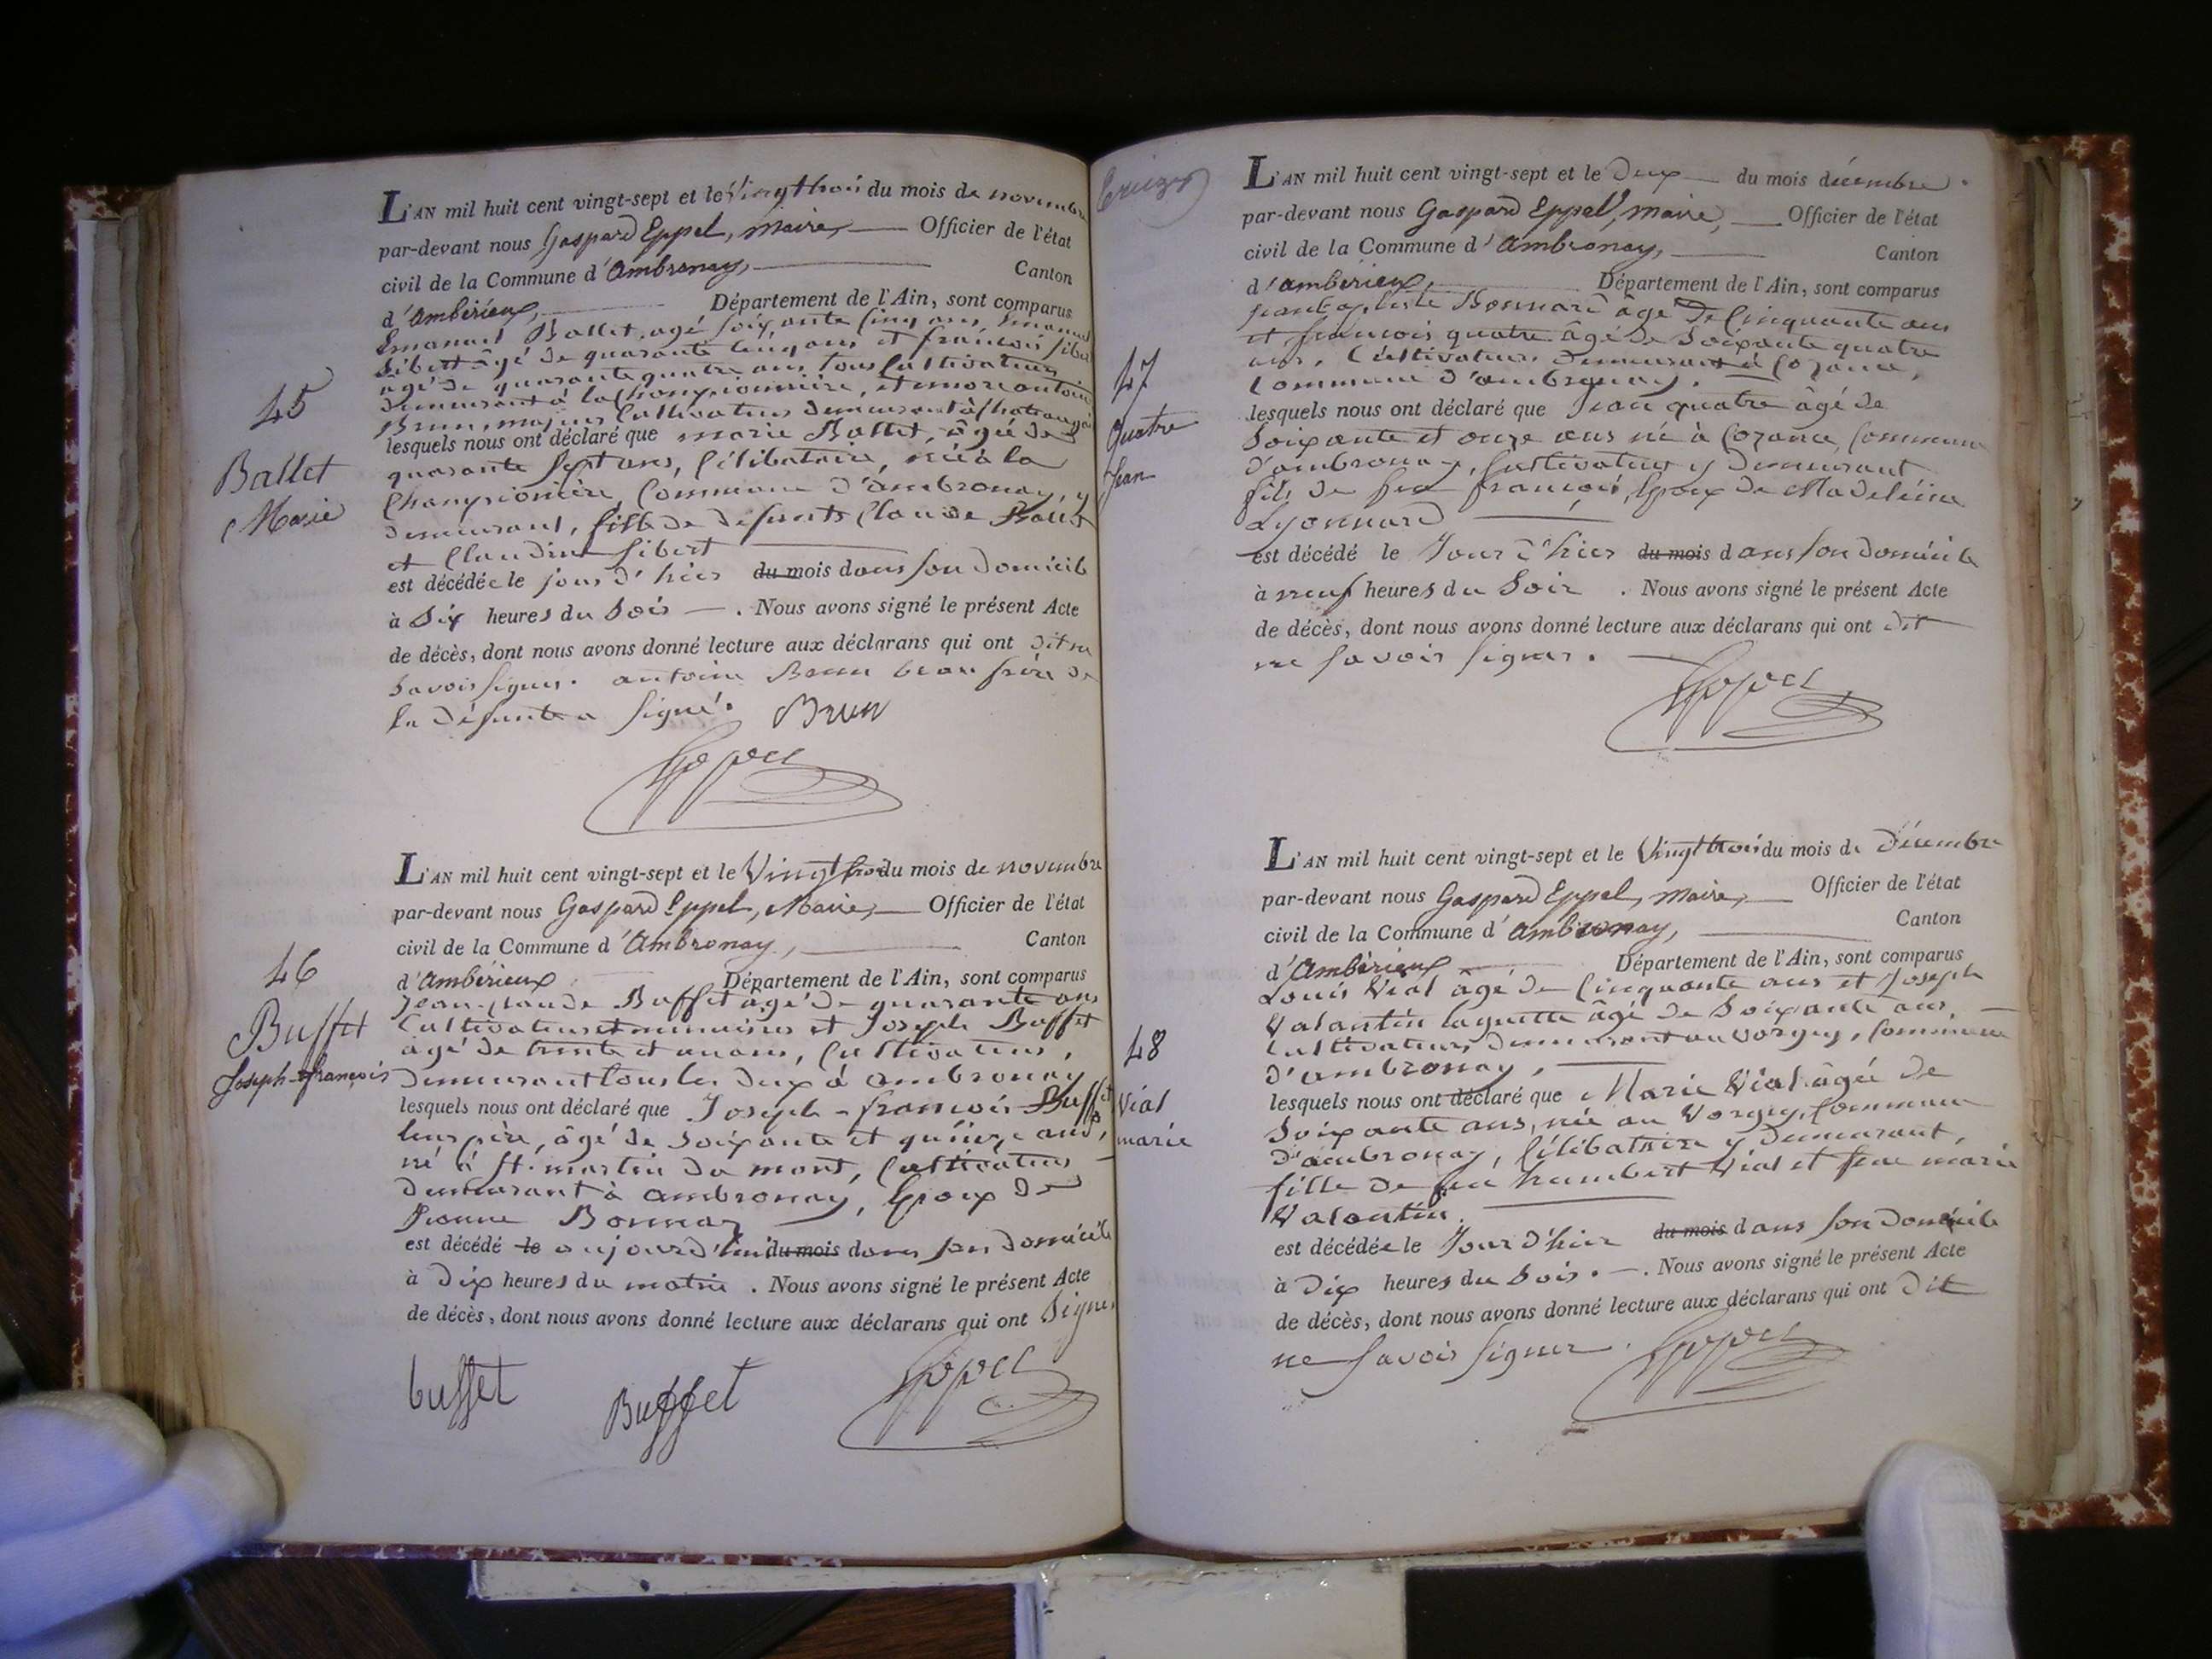 L'AN mil huit cent vingt-sept et le Vingt trois du mois de novembre
par-devant nous Gaspard Eppel, Maire, Officier de l'état
civil de la Commune d'Ambronay, Canton
d'Ambérieux, Département de l'Ain, sont comparus
Emanuel Ballet, agé soixante cinq ans, Emanuel
Sibert âgé de quarante cinq ans et francois Sibert
agé de quarante quatre ans tous Cultivateurs
demeurant à la Championnière, et encore antoine
Brun, majeur Cultivateur demeurant à
45
Ballet
Marie
lesquels nous ont déclaré que marie Ballet, âgée de
quarante sept ans, Célibataire, née à la
Championière, Commune d'ambronay, y
demeurant, fille de défunts Claude Ballet
et Claudine Sibert
est décédée le jour d'hier du mois dans son domicile
à Six heures du Soir. Nous avons signé le présent Acte
de décès, dont nous avons donné lecture aux déclarans qui ont dit ne
Savoir Signer. antoine Brun beau frère de
la défunte a signé. Brun
Eppel
L'AN mil huit cent vingt-sept et le Vingt trois du mois de novembre
par-devant nous Gaspard Eppel, Maire, Officier de l'état
civil de la Commune d'Ambronay, Canton
d'Ambérieux Département de l'Ain, sont comparus
46
Buffet
Joseph-françois
Jean-claude Buffet âgé de quarante ans
Cultivateur et menuisier et Joseph Buffet
agé de trente et un ans, Cultivateur,
demeurant tous les deux à ambronay
lesquels nous ont déclaré que Joseph-francois Buffet
leur père, âgé de soixante et quinze ans,
né à St. martin du mont, Cultivateur
demeurant à ambronay, Epoux de
Jeanne Bonnaz
est décédé le aujourd'hui du mois dans son domicile
à Dix heures du matin. Nous avons signé le présent Acte
de décès, dont nous avons donné lecture aux déclarans qui ont Signé.
buffet Buffet Eppel
L'AN mil huit cent vingt-sept et le Deux du mois décembre.
par-devant nous Gaspard Eppel, maire, Officier de l'état
civil de la Commune d'Ambronay, Canton
d'ambérieux, Département de l'Ain, sont comparus
jean baptiste Bonnard âgé De Cinquante ans
et francois quatre âgé de Soixante quatre
ans, Cultivateurs demeurant à Cozance,
Commune d'ambronay.
47
Quatre
Jean
lesquels nous ont déclaré que Jean quatre âgé de
Soixante et onze ans né à Cozance, Commune
d'ambronay, Cultivateur y demeurant
fils de feu francois, Epoux de Madeleine
Lyonnard
est décédé le Jour d'hier du mois dans son domicile
à neuf heures du Soir. Nous avons signé le présent Acte
de décès, dont nous avons donné lecture aux déclarans qui ont dit
ne Savoir signer.
Eppel
L'AN mil huit cent vingt-sept et le Vingt trois du mois de Décembre
par-devant nous Gaspard Eppel, maire, Officier de l'état
civil de la Commune d'Ambronay, Canton
d'Ambérieux Département de l'Ain, sont comparus
Louis Vial âgé de Cinquante ans et Joseph
Valantin laguette âgé de Soixante ans,
Cultivateurs demeurant au Vorgey, Commune
d'ambronay,
48
Vial
marie
lesquels nous ont déclaré que Marie Vial âgée de
Soixante ans, née au Vorgey, Commune
d'ambronay, Célibataire y demeurant,
fille de feu humbert Vial et feue marie
Valantin.
est décédée le Jour d'hier du mois dans son domicile
à Dix heures du Soir. Nous avons signé le présent Acte
de décès, dont nous avons donné lecture aux déclarans qui ont Dit
ne savoir signer. Eppel